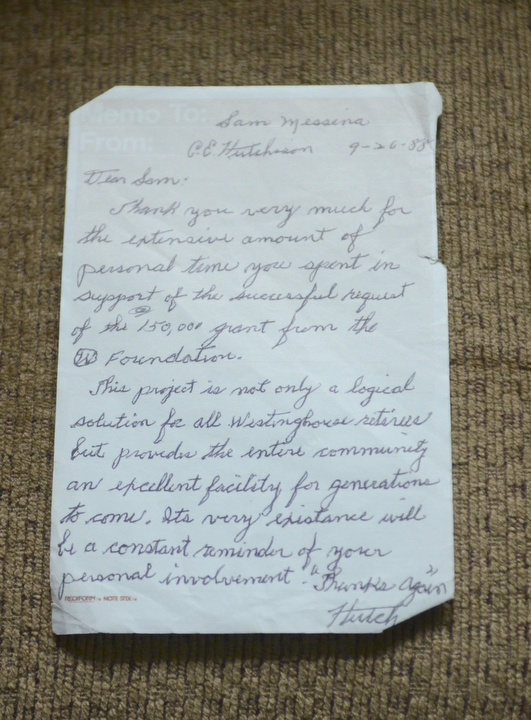 Memo To: Sam Messina
From: C.E. Hutcheson 9-26-88
Dear Sam:
Thank you very much for
the extensive amount of
personal time you spent in
support of the successful request
of the 150,000 grant from the
Ⓦ Foundation.
This project is not only a logical
solution for all Westinghouse retirees
but provides the entire community
an excellent facility for generations
to come. Its very existance will
be a constant reminder of your
personal involvement. "Thanks Again"
Hutch
REDIFORM NOTE STIX